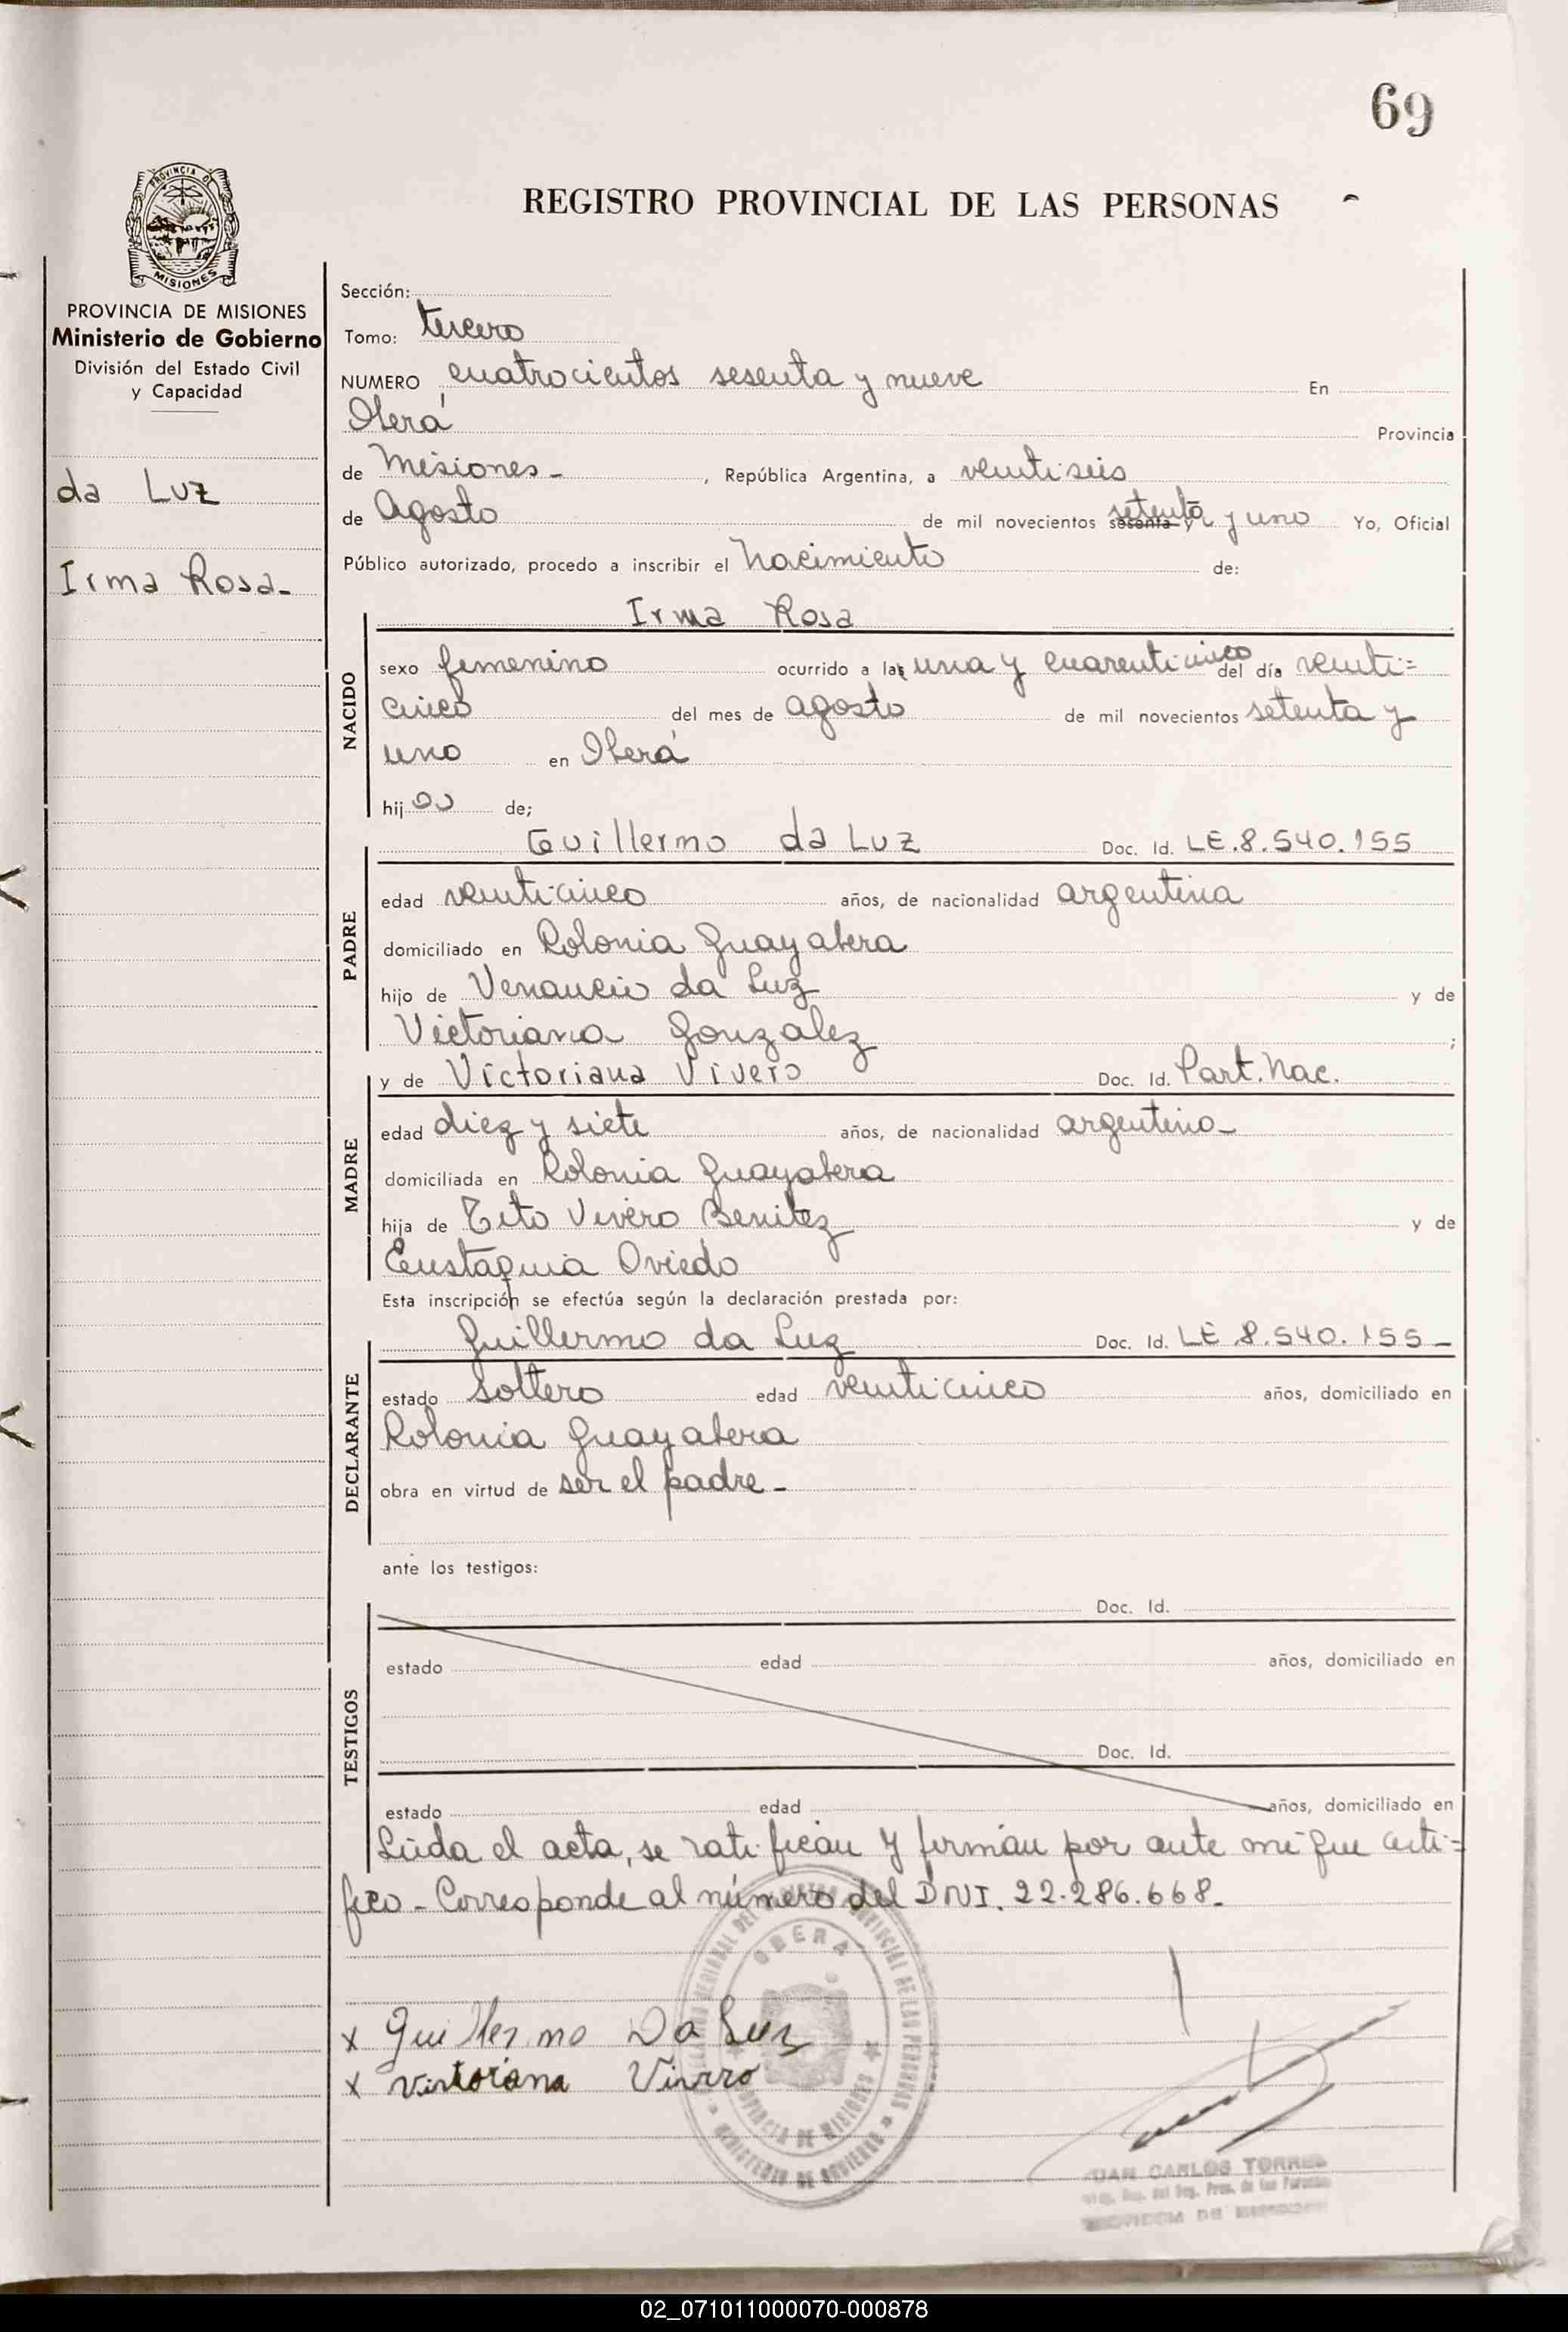 69
REGISTRO PROVINCIAL DE LAS PERSONAS
PROVINCIA DE MISIONES
PROVINCIA DE MISIONES
Ministerio de Gobierno
División del Estado Civil
y Capacidad
da Luz
Irma Rosa-
Sección:
Tomo: tercero
NUMERO cuatrocientos sesenta y nueve En
Oberá Provincia
de Misiones - , República Argentina, a veintiseis
de Agosto de mil novecientos sesenta y setenta y uno Yo, Oficial
Público autorizado, procedo a inscribir el Nacimiento de:
Irma Rosa
NACIDO
sexo femenino ocurrido a las una y cuarenticinco del día veinti=
cinco del mes de agosto de mil novecientos setenta y
uno en Oberá
hij de;
Guillermo da Luz Doc. Id. LE.8.540.155
PADRE
edad veinticinco años, de nacionalidad argentina
domiciliado en Colonia Guayabera
hijo de Venancio da Luz y de
Victoriana Gonzalez ;
y de Victoriana Vivero Doc. Id. Part. Nac.
MADRE
edad diez y siete años, de nacionalidad argentina-
domiciliada en Colonia Guayabera
hija de Tito Vivero Benitez y de
Eustaquia Oviedo
Esta inscripción se efectúa según la declaración prestada por:
Guillermo da Luz Doc. Id. LE 8.540.155-
DECLARANTE
estado soltero edad veinticinco años, domiciliado en
Colonia Guayabera
obra en virtud de ser el padre-
ante los testigos:
TESTIGOS
Doc. Id.
estado edad años, domiciliado en
Doc. Id.
estado edad años, domiciliado en
Leida el acta, se ratifican y firman por ante mi que certi=
fico - Corresponde al número del DNI. 22.286.668-
OBERA
PROVINCIA DE MISIONES
MINISTERIO DE GOBIERNO
x Guillermo Da Luz
x Victoriana Vivero
JUAN CARLOS TORRES
del Reg. Prov. de las Personas
PROVINCIA DE MISIONES
02_071011000070-000878